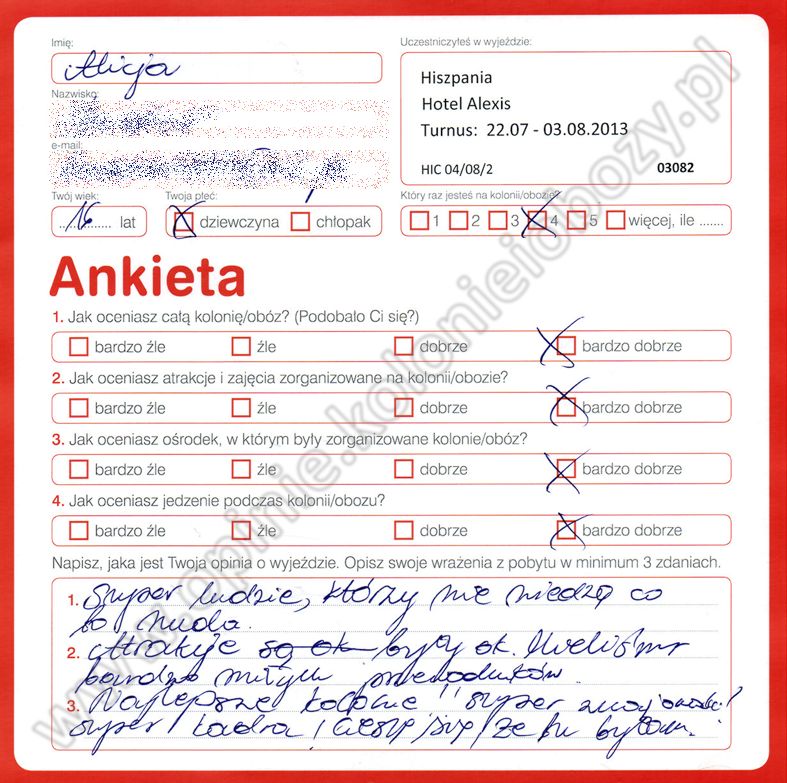 Imię: Uczestniczyłeś w wyjeździe:
Alicja
Hiszpania
Hotel Alexis
Turnus: 22.07 - 03.08.2013
HIC 04/08/2 03082
Nazwisko:
e-mail:
Twój wiek: Twoja płeć: Który raz jesteś na kolonii/obozie?
16 lat dziewczyna chłopak 1 2 3 4 5 więcej, ile .......
Ankieta
1. Jak oceniasz całą kolonię/obóz? (Podobało Ci się?)
bardzo źle źle dobrze bardzo dobrze
2. Jak oceniasz atrakcje i zajęcia zorganizowane na kolonii/obozie?
bardzo źle źle dobrze bardzo dobrze
3. Jak oceniasz ośrodek, w którym były zorganizowane kolonie/obóz?
bardzo źle źle dobrze bardzo dobrze
4. Jak oceniasz jedzenie podczas kolonii/obozu?
bardzo źle źle dobrze bardzo dobrze
Napisz, jaka jest Twoja opinia o wyjeździe. Opisz swoje wrażenia z pobytu w minimum 3 zdaniach.
1. Super ludzie, którzy nie wiedzą co
to nuda.
2. Atrakcje są ok były ok. Mieliśmy
bardzo miłych
3. Najlepsze kolonie !! super znajomości!
super kadra! cieszę się, że tu byłam.
www.opinie.kolonieiobozy.pl